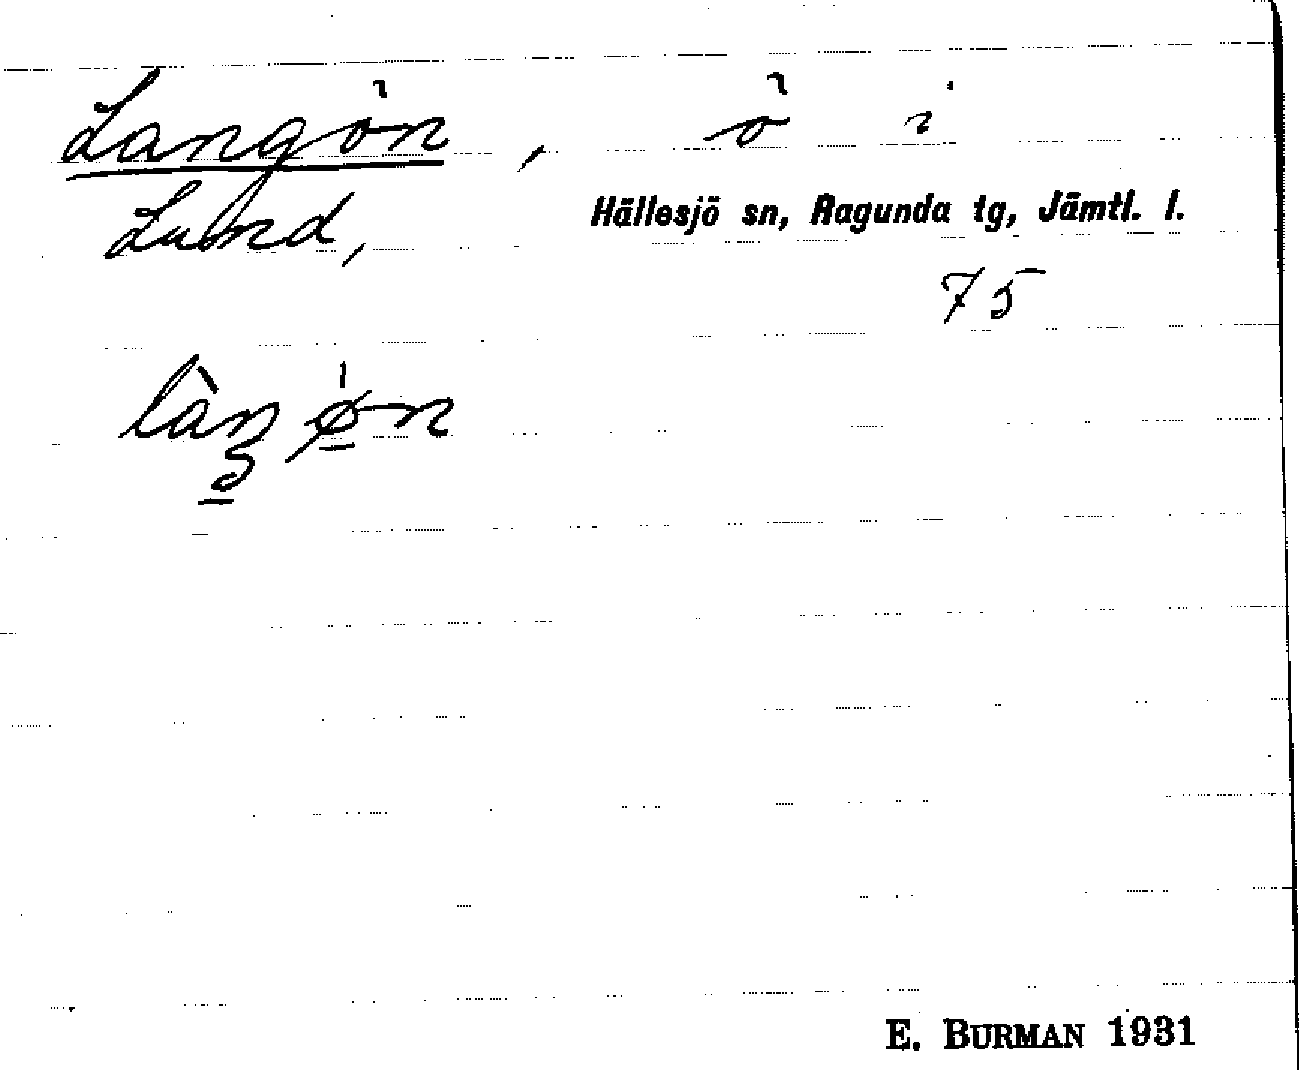 Langön, ö i
Lund, Hällesjö sn, Ragunda tg, Jämtl. l.
75
E. BURMAN 1931